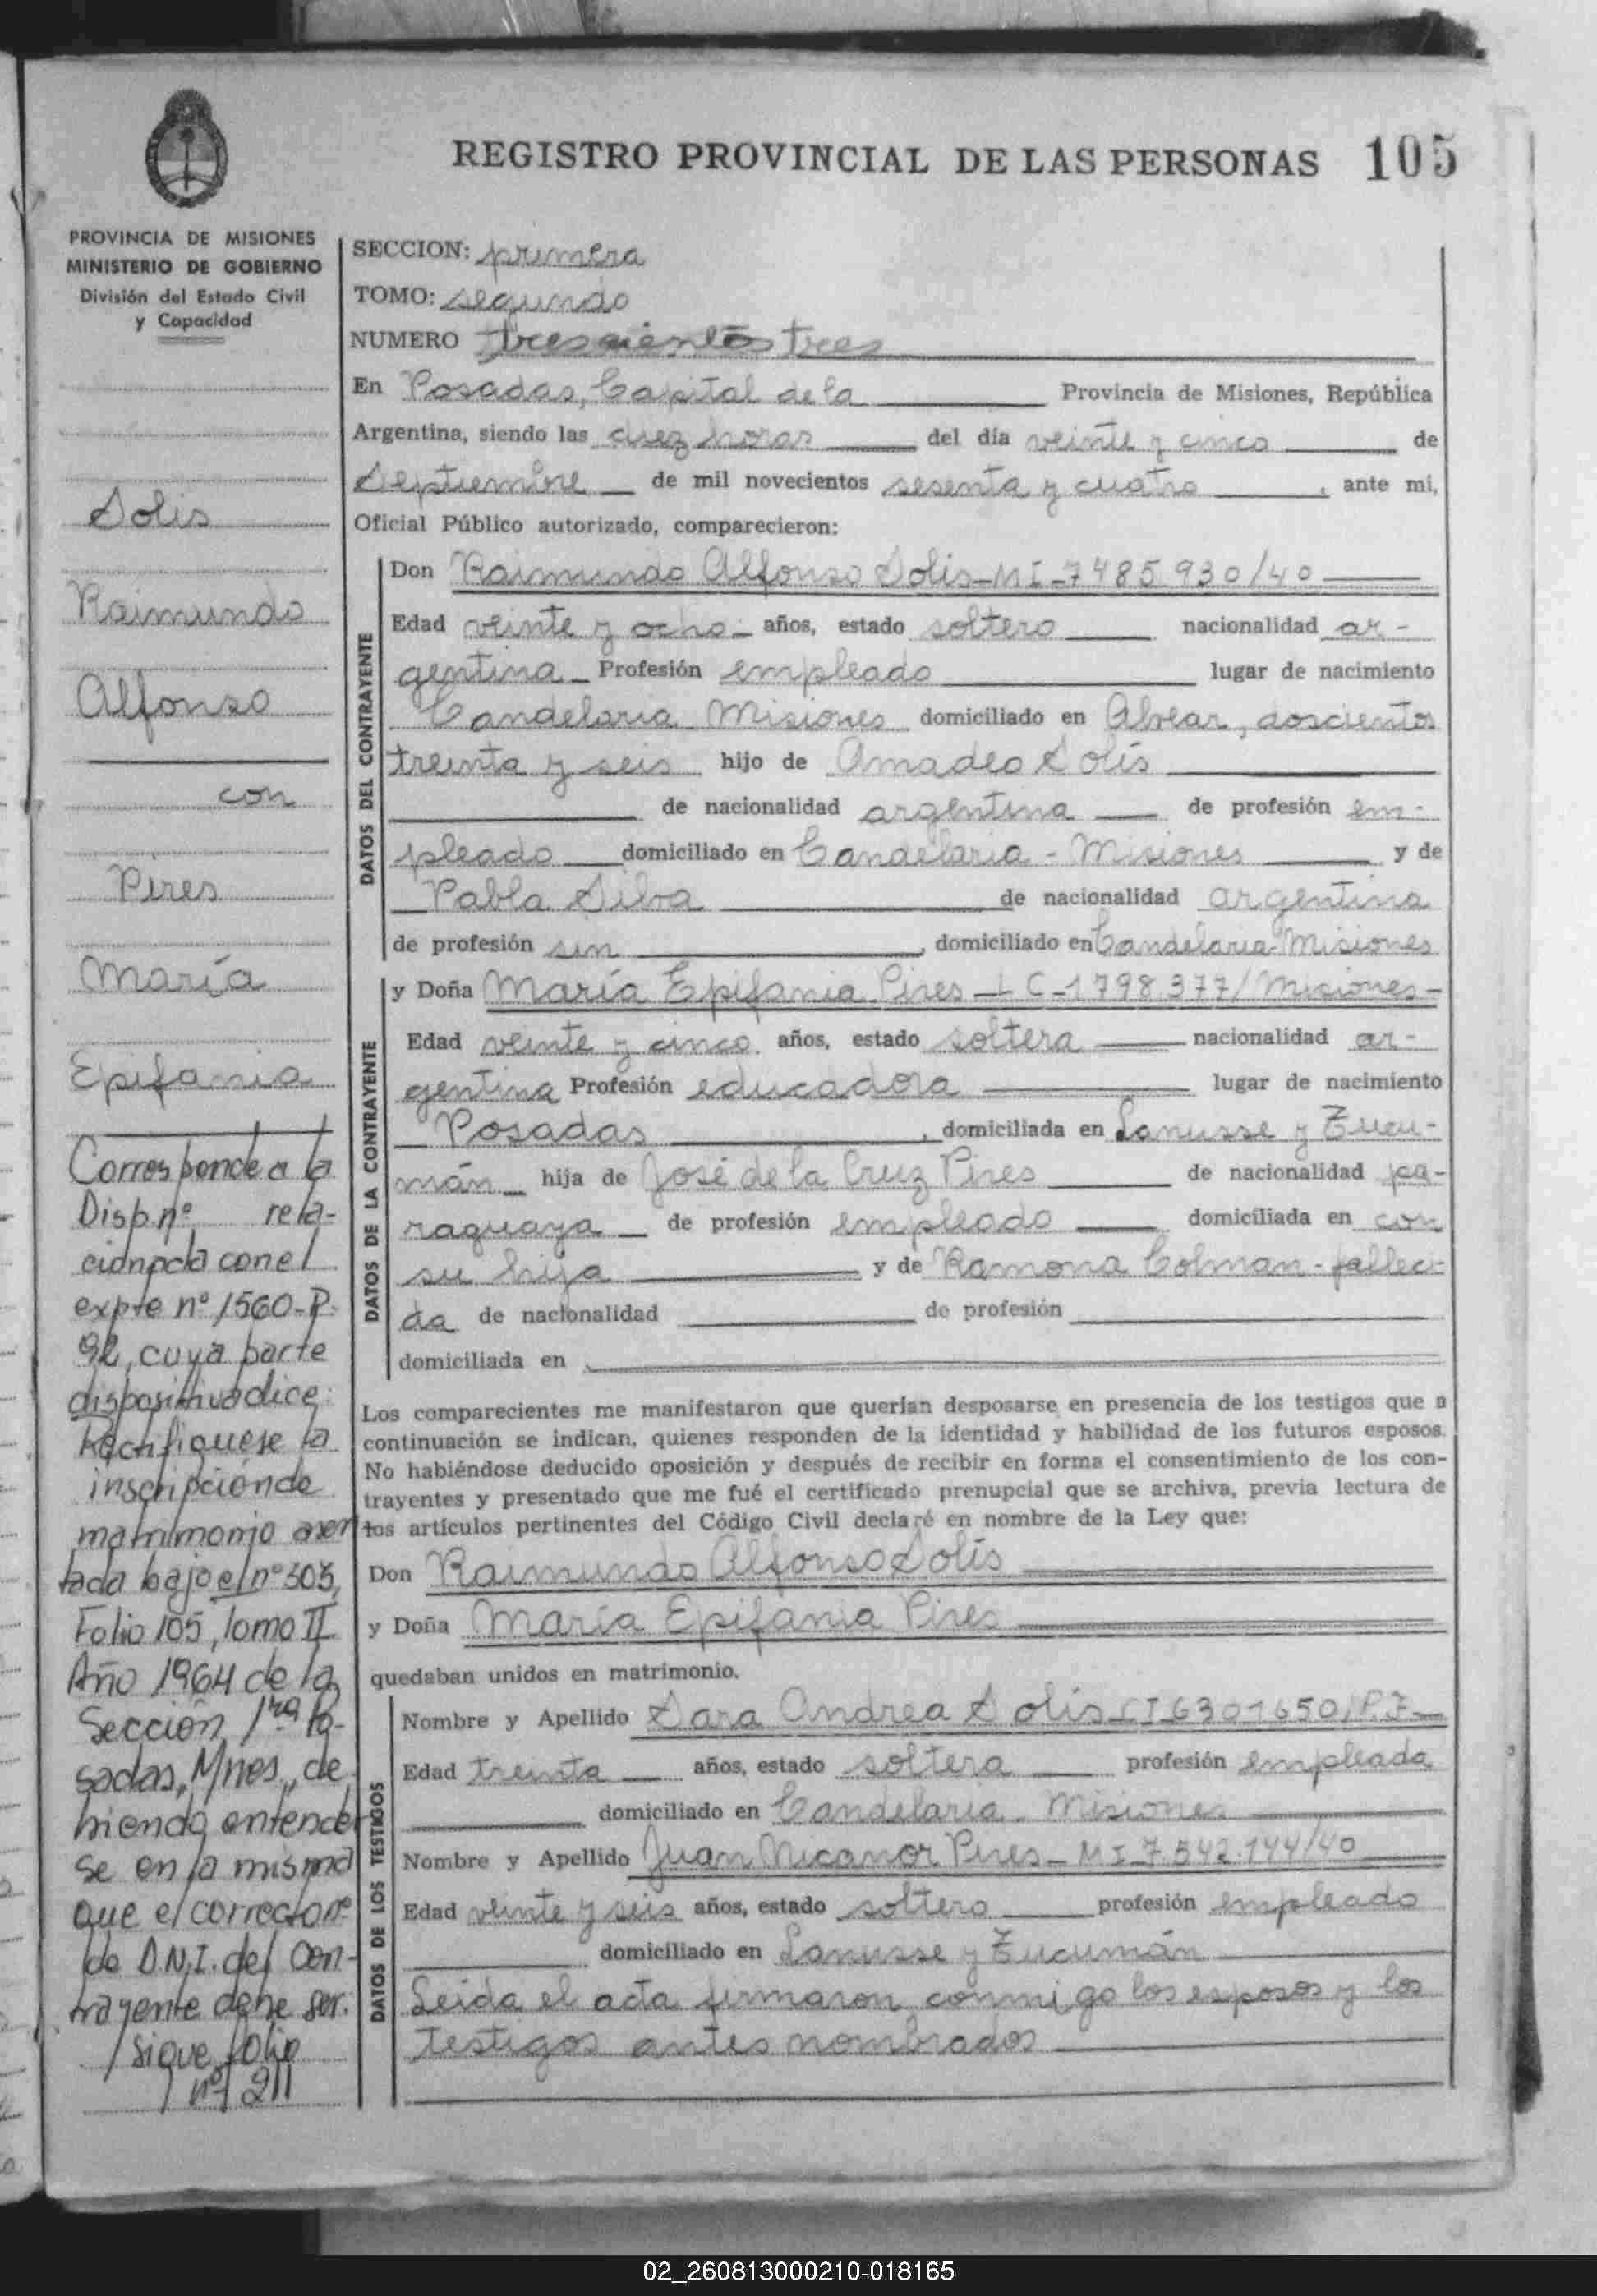 REGISTRO PROVINCIAL DE LAS PERSONAS 105
PROVINCIA DE MISIONES
MINISTERIO DE GOBIERNO
División del Estado Civil
y Capacidad
Solis
Raimundo
Alfonso
con
Pires
María
Epifania
Corresponde a la
Disp. nº rela-
cionada con el
expte nº 1560-P-
92, cuya parte
dispositiva dice:
Rectifiquese la
inscripción de
matrimonio asen
tada bajo el nº 303,
Folio 105, Tomo II
Año 1964 de la
Sección 1ra Po-
sadas, Mnes, de
biendo entender
se en la misma
que el correcto nº
de D.N.I. del Con-
trayente debe ser.
/ Sigue folio
nº 211
SECCION: primera
TOMO: segundo
NUMERO trescientos tres
En Posadas, Capital de la Provincia de Misiones, República
Argentina, siendo las diez horas del día veinte y cinco de
Septiembre de mil novecientos sesenta y cuatro, ante mi,
Oficial Público autorizado, comparecieron:
DATOS DEL CONTRAYENTE
Don Raimundo Alfonso Solis-MI-7485930/40
Edad veinte y ocho años, estado soltero nacionalidad ar-
gentina Profesión empleado lugar de nacimiento
Candelaria Misiones domiciliado en Alvear, doscientos
treinta y seis hijo de Amadeo Solís
de nacionalidad argentina de profesión em-
pleado domiciliado en Candelaria - Misiones y de
Pabla Silva de nacionalidad argentina
de profesión sin, domiciliado en Candelaria-Misiones
DATOS DE LA CONTRAYENTE
y Doña María Epifania Pires - LC-1798377/Misiones-
Edad veinte y cinco años, estado soltera nacionalidad ar-
gentina Profesión educadora lugar de nacimiento
Posadas, domiciliada en Lanusse y Tucu-
mán hija de José de la Cruz Pires de nacionalidad pa-
raguaya de profesión empleado domiciliada en con
su hija y de Ramona Colman-falleci-
da de nacionalidad de profesión
domiciliada en
Los comparecientes me manifestaron que querían desposarse en presencia de los testigos que a
continuación se indican, quienes responden de la identidad y habilidad de los futuros esposos.
No habiéndose deducido oposición y después de recibir en forma el consentimiento de los con-
trayentes y presentado que me fué el certificado prenupcial que se archiva, previa lectura de
los artículos pertinentes del Código Civil declaré en nombre de la Ley que:
Don Raimundo Alfonso Solís
y Doña María Epifania Pires
quedaban unidos en matrimonio.
DATOS DE LOS TESTIGOS
Nombre y Apellido Sara Andrea Solis CI 6301650/P.F.
Edad treinta años, estado soltera profesión empleada
domiciliado en Candelaria - Misiones
Nombre y Apellido Juan Nicanor Pires-MI 7.542.144/40
Edad veinte y seis años, estado soltero profesión empleado
domiciliado en Lanusse y Tucumán
Leida el acta firmaron conmigo los esposos y los
testigos antes nombrados
02_260813000210-018165